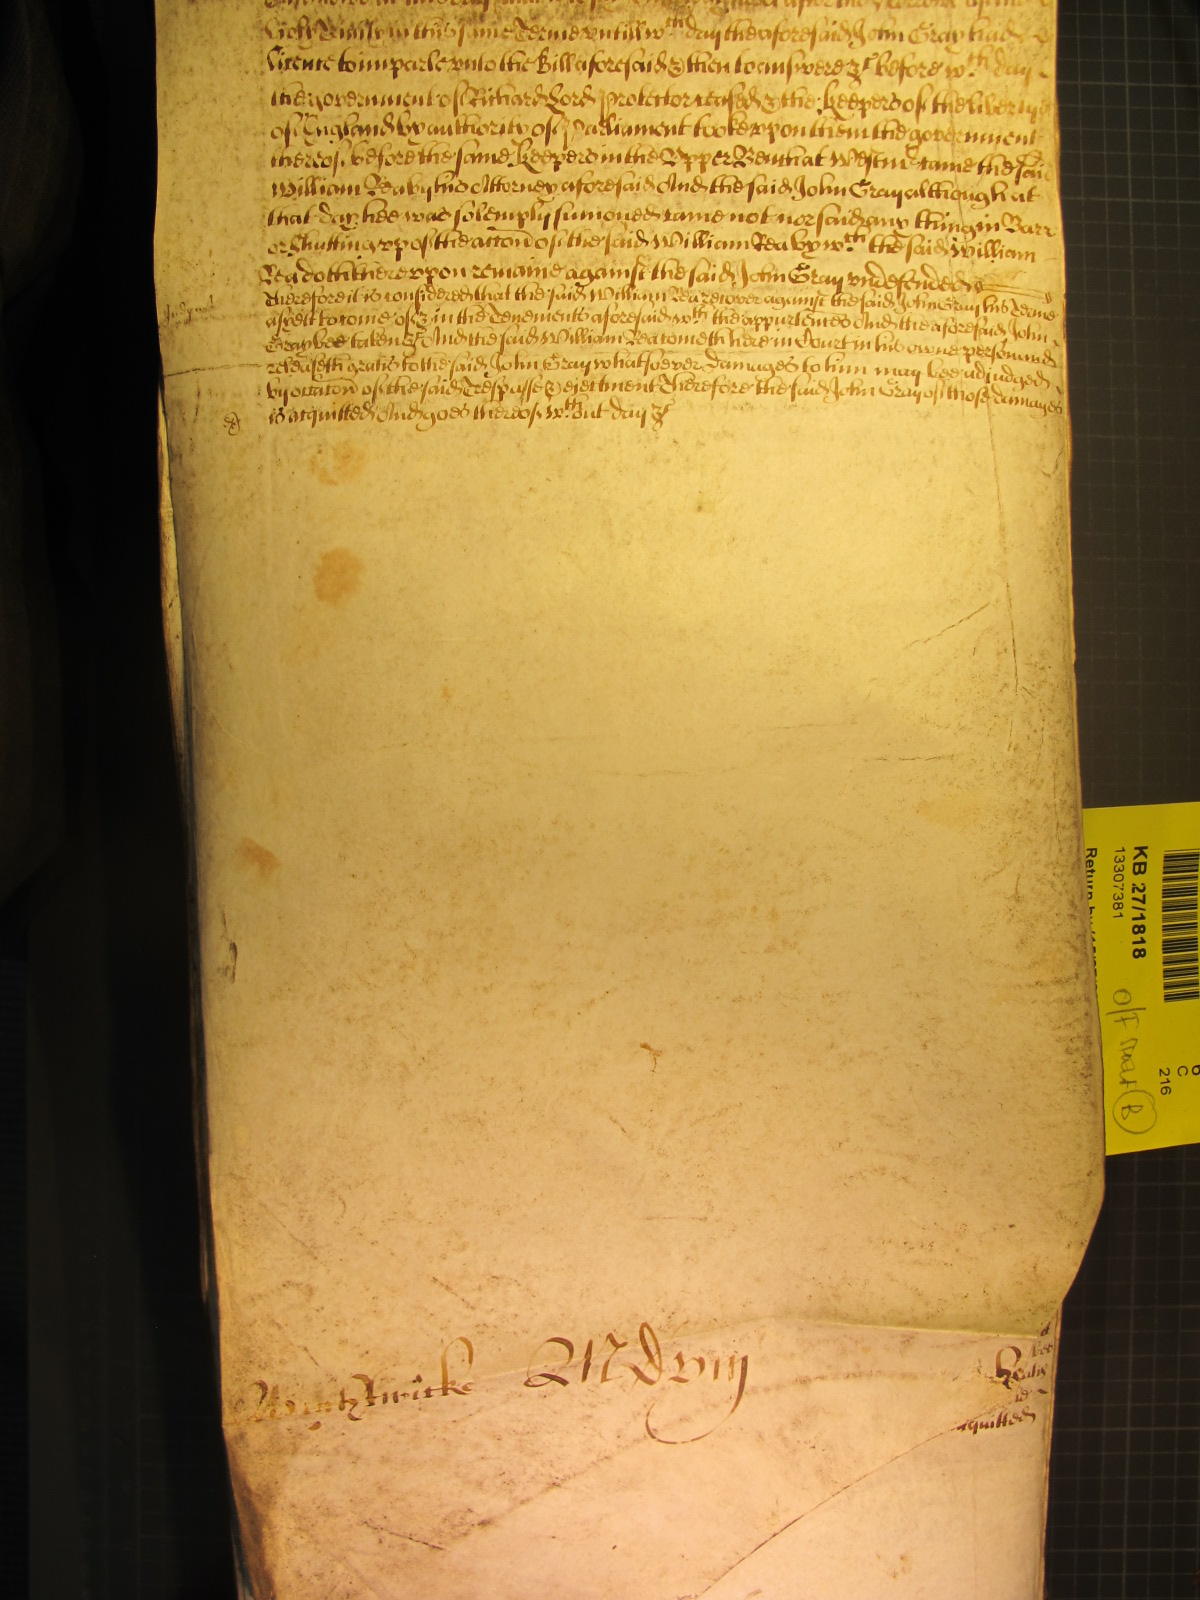 holy Trinity in this same Terme untill wch day the aforesaid John Gray had
licence to imparle unto the Bill aforesaid & then to answere &c before wch day
the government of Richard Lord Protector ceased & the keepers of the liberty
of England by authority of Parliament tooke upon them the government
thereof before the same keepers in the Upper Bench at Westmr came the said
William Rea by his Attorney aforesaid And the said John Gray although at
that day hee was solemply sumoned came not nor said any thing in Barr
or Shutting up of the accon of the said William Rea by wch the said William
Rea doth thereupon remaine against the said John Gray undefended
Therefore it is considered that the said William Rea recover against the said John Gray his Terme
as yett to come of & in the Tenements aforesaid wth the appurtences And the aforesaid John
Gray bee taken &c And the said William Rea cometh here in Court in his owne person and
releaseth gratis to the said John Gray whatsoever damages to him may bee adjudged
by occacon of the said Trespasse & ejectment Therefore the said John Gray of those damages
is acquitted And goes thereof wthout day &c
Judgmt
MDviij
acquitted
KB 27/1818
13307381
Return by
6
C
216
O/F
B